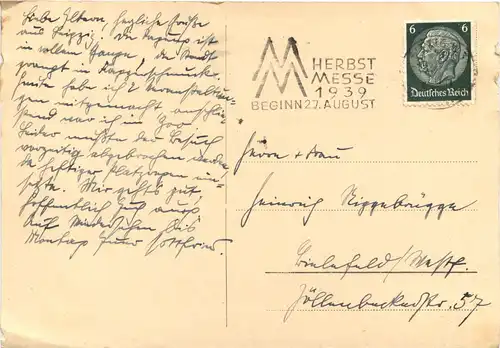 Liebe Eltern, herzliche Grüße
aus Leipzig! Die Tagung ist
in vollem Gange, die Stadt
prangt in Flaggenschmuck.
Heute habe ich 2 Veranstaltun-
gen mitgemacht anschlie-
ßend war ich im Zoo
Leider mußte der Besuch
vorzeitig abgebrochen werden
da heftiger Platzregen ein-
setzte. Mir geht's gut,
hoffentlich Euch auch
Auf Wiedersehen bis
Montag Euer Gottfried.
MM HERBST
MESSE
1939
BEGINN 27. AUGUST
6 6
Deutsches Reich
Herrn + Frau
Heinrich Niggebrügge
Bielefeld/Westf.
Jöllenbeckerstr. 57